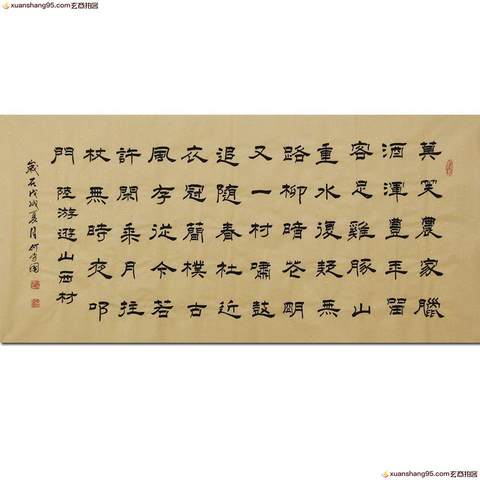 xuanshang95.com玄商拍图
莫笑農家臘
酒渾豐年留
客足雞豚山
重水復疑無
路柳暗花明
又一村嘯鼓
追隨春社近
衣冠簡樸古
風存從今若
許閑乘月拄
杖無時夜叩
門 陸游遊山西村
歲在戊戌夏月何
xuanshang95.com玄商拍图